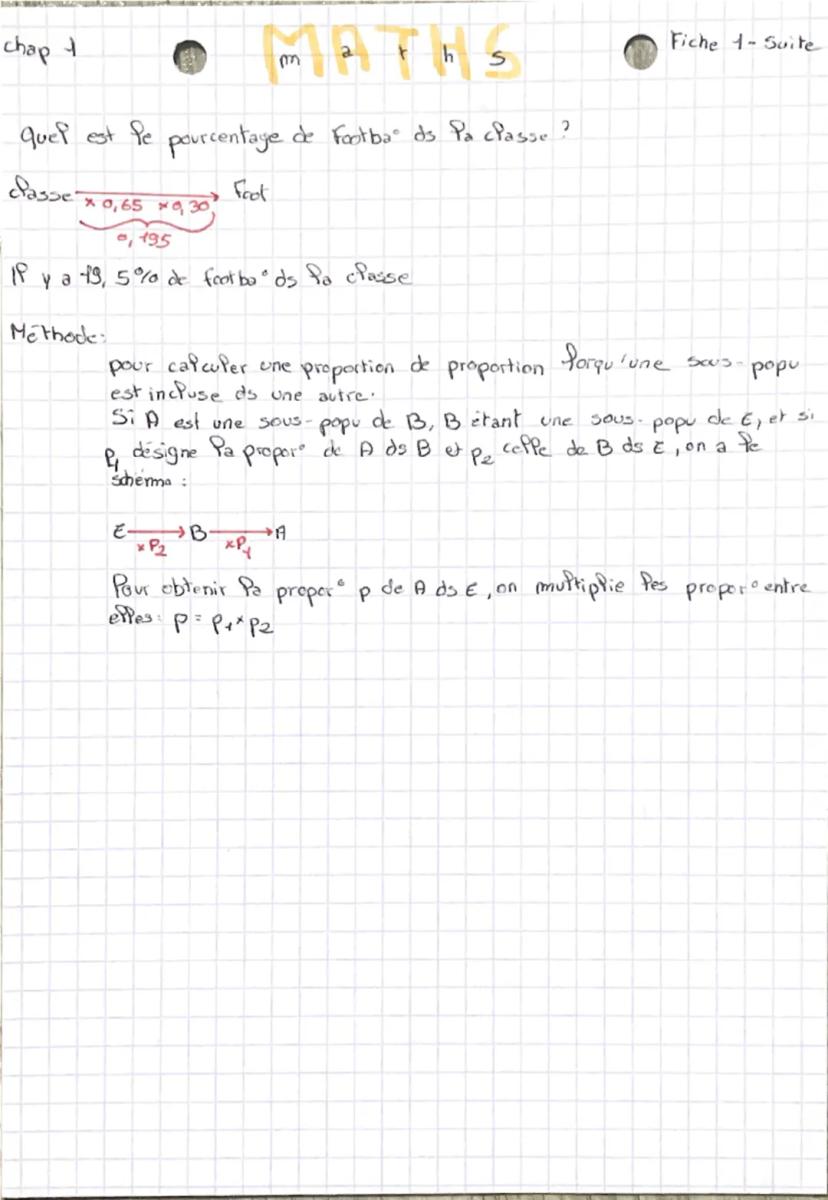 chap 1
MATHS
m a t h s
Fiche 1 - Suite
Quel est le pourcentage de Footba° ds la classe ?
classe × 0,65 × 0,30 Foot
0,195
Il y a 19,5% de footba° ds la classe
Méthode:
pour calculer une proportion de proportion lorqu'une sous-popu
est incluse ds une autre.
Si A est une sous-popu de B, B étant une sous-popu de E, et si
p₁ désigne la propor° de A ds B et p₂ celle de B ds E, on a le
schéma :
E → B → A
×P₂ ×P₁
Pour obtenir la propor° p de A ds E, on multiplie les propor° entre
elles: p = p₁ × p₂